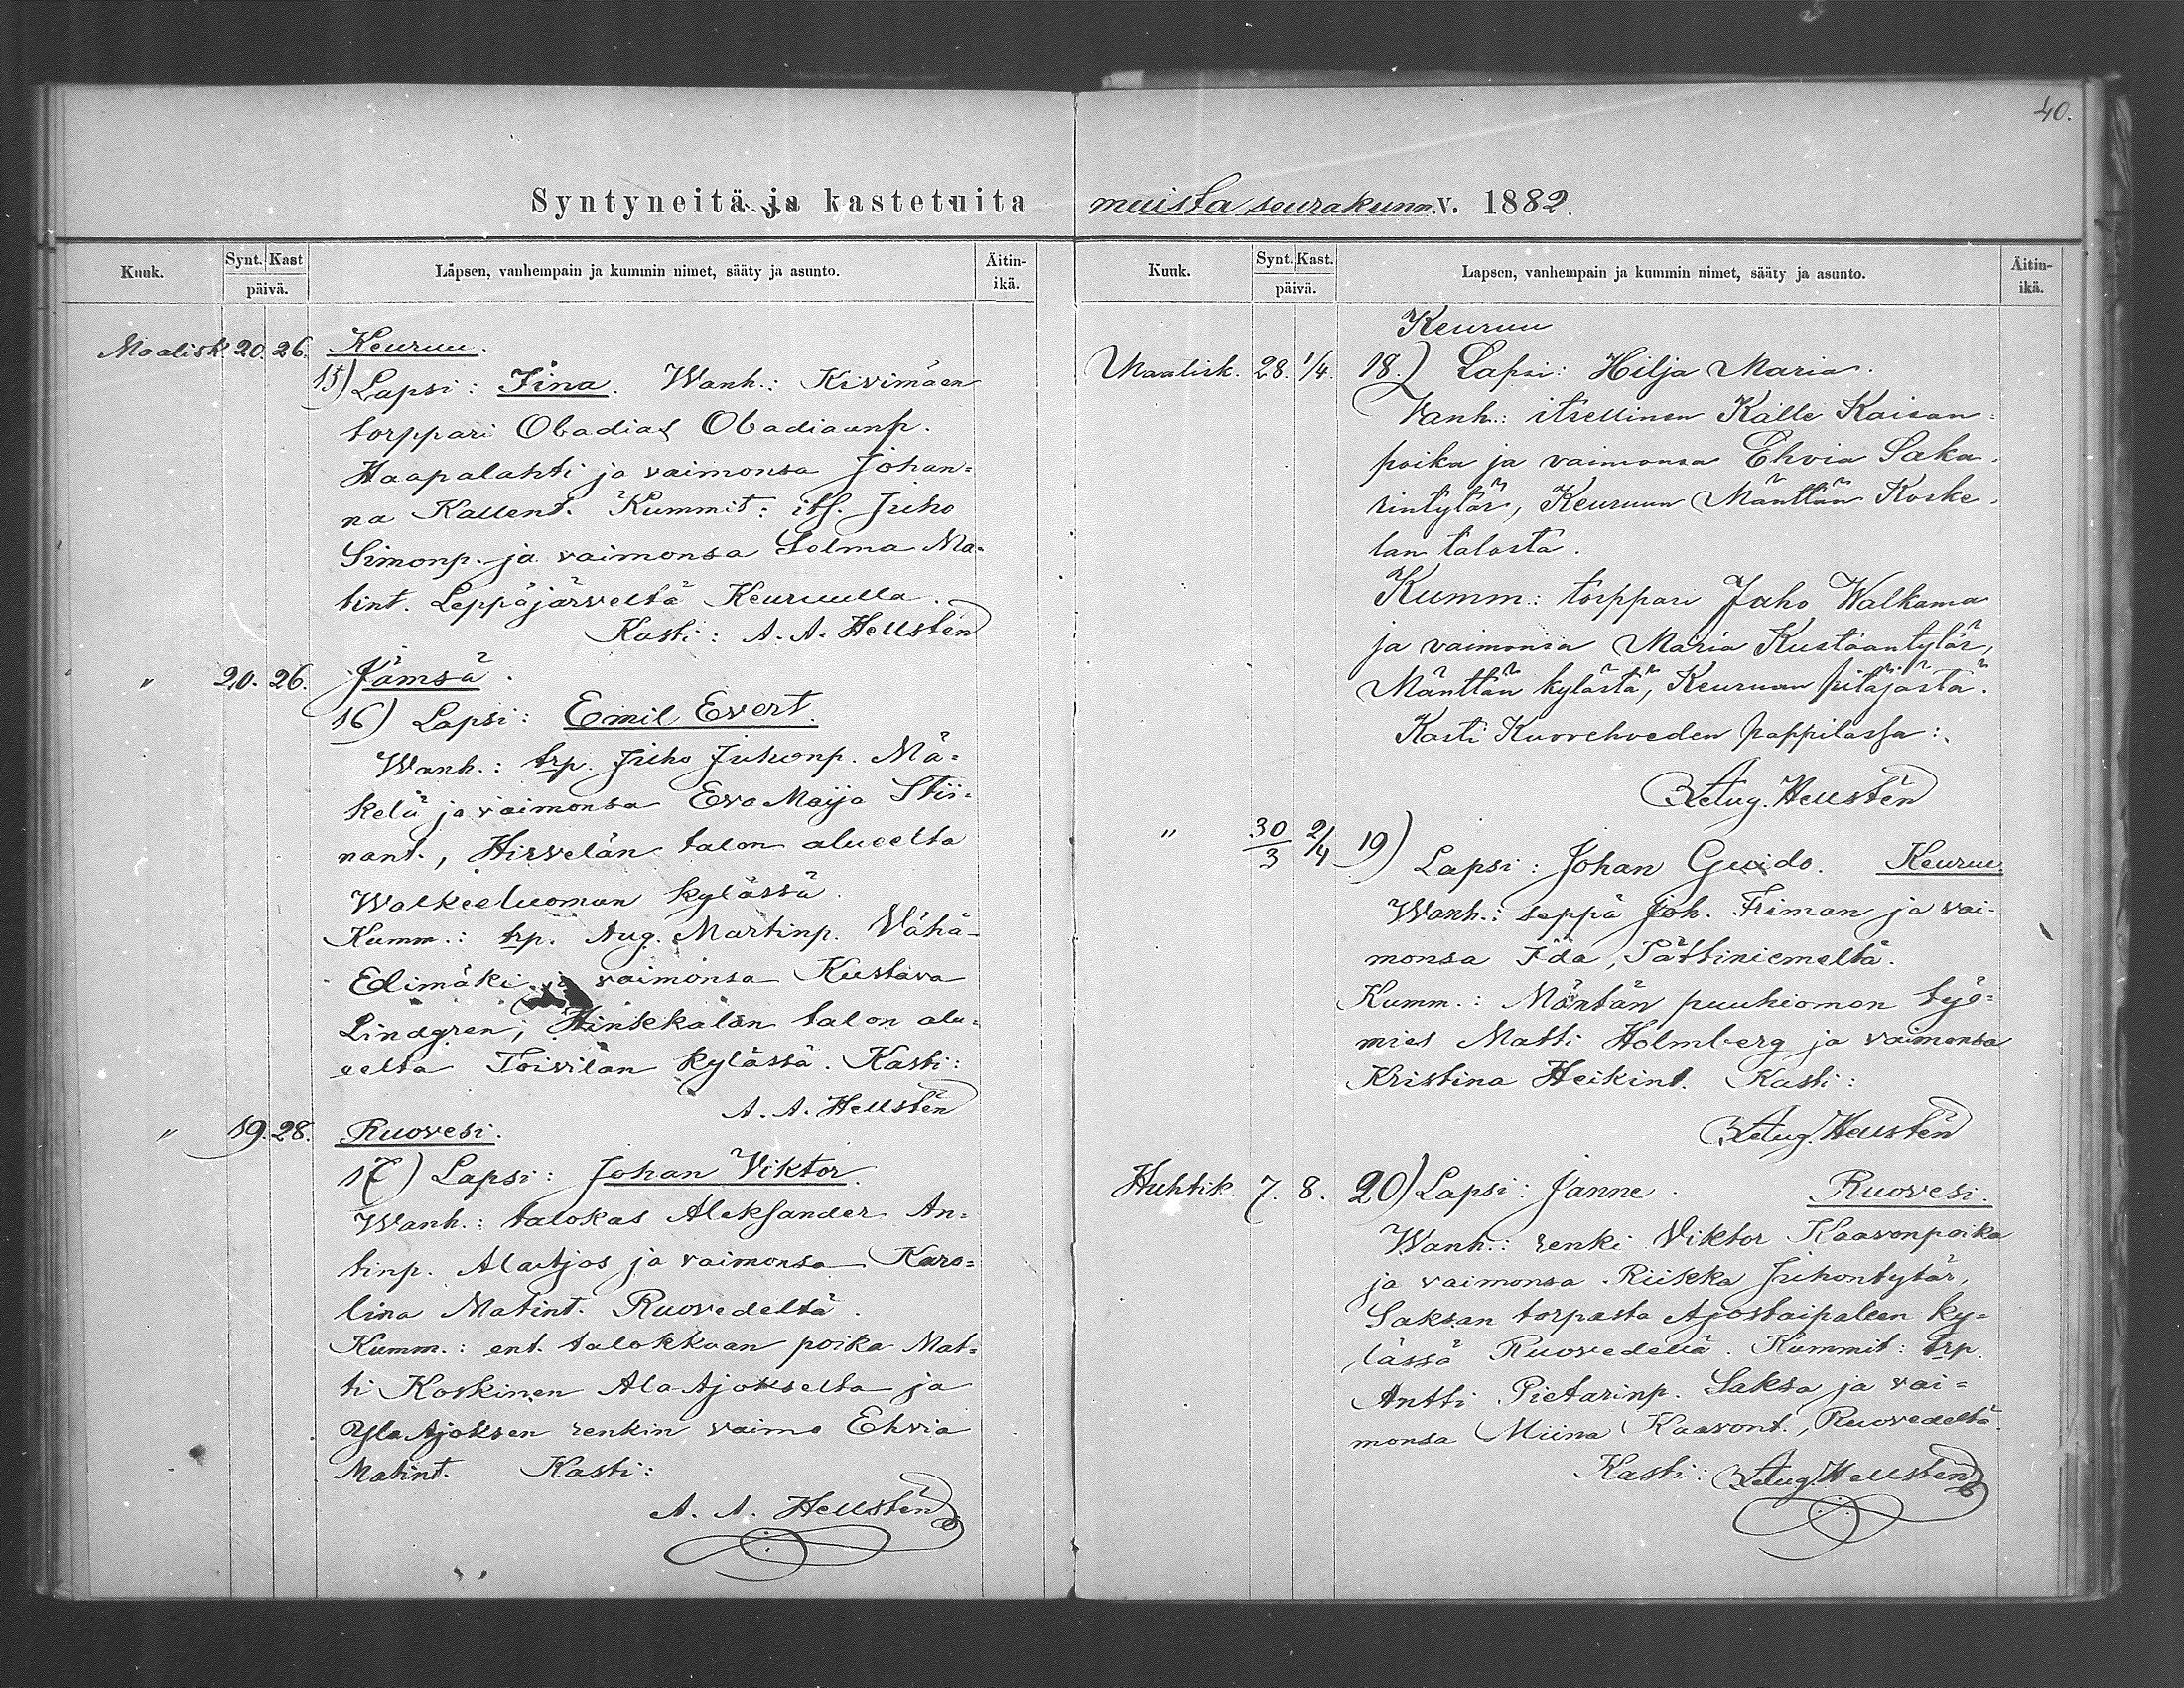 40.
Syntyneitä ja kastetuita muista seurakunn. v. 1882.
Kuuk. Synt. Kast päivä. Lapsen, vanhempain ja kummin nimet, sääty ja asunto. Äitin-ikä.
Maalisk 20. 26. Keuruu.
15) Lapsi: Iina. Wanh.: Kivimäen
torppari Obadias Obadiaanp.
Haapalahti ja vaimonsa Johan=
na Kallent. Kummit: its. Juho
Simonp. ja vaimonsa Solma Ma=
tint. Leppäjärveltä Keuruulla.
Kasti: A. A. Hellstén
" 20. 26. Jämsä.
16) Lapsi: Emil Evert.
Wanh.: trp. Juho Juhonp. Mä=
kelä ja vaimonsa Eva Maija Stii=
nant., Hirvelän talon alueelta
Walkeeluoman kylässä.
Kumm.: trp. Aug. Martinp. Vähä-
Edimäki ja vaimonsa Kustava
Lindgren, Hinkkalan talon alu=
eelta Toivilan kylässä. Kasti:
A. A. Hellstén
" 19. 28. Ruovesi.
17) Lapsi: Johan Viktor.
Wanh.: talokas Aleksander An=
tinp. AlaAjos ja vaimonsa Karo=
lina Matint. Ruovedeltä.
Kumm.: ent. talokkaan poika Mat=
ti Koskinen Ala Ajokselta ja
YlaAjoksen renkin vaimo Ehvia
Matint. Kasti:
A. A. Hellstén
Kuuk. Synt. Kast. päivä. Lapsen, vanhempain ja kummin nimet, sääty ja asunto. Äitin-ikä.
Keuruu
Maalisk. 28. 1/4. 18.) Lapsi: Hilja Maria.
Vanh.: itsellinen Kalle Kaisan=
poika ja vaimonsa Ehvia Saka=
rintytär, Keuruun Mänttän Koske=
lan talosta.
Kumm.: torppari Juho Walkama
ja vaimonsa Maria Kustaantytär,
Mänttän kylästä, Keuruun pitäjästä.
Kasti Kuorehveden pappilassa:
Aug. Hellstén
" 30/3 2/4 19)
Lapsi: Johan Guido. Keuruu.
Wanh.: seppä Joh. Friman ja vai=
monsa Ida, Pättiniemeltä.
Kumm.: Mäntän puuhiomon työ=
mies Matti Holmberg ja vaimonsa
Kristina Heikint. Kasti:
Aug. Hellstén
Huhtik. 7. 8. 20) Lapsi: Janne. Ruovesi.
Wanh.: renki Viktor Kaavonpoika
ja vaimonsa Riikka Juhontytär,
Saksan torpasta Ajostaipaleen ky=
lässä Ruovedellä. Kummit: trp.
Antti Pietarinp. Saksa ja vai=
monsa Miina Kaavont., Ruovedeltä
Kasti: Aug. Hellstén